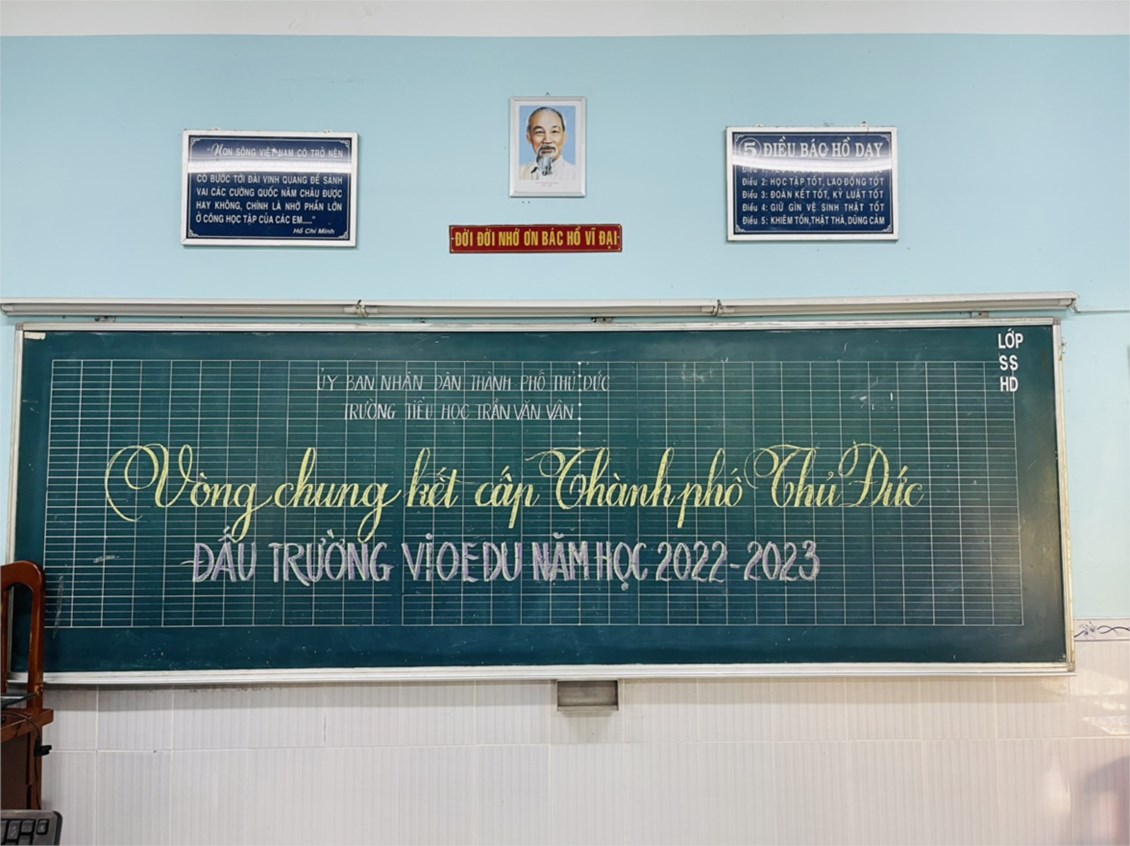 "NON SÔNG VIỆT NAM CÓ TRỞ NÊN
CÓ BƯỚC TỚI ĐÀI VINH QUANG ĐỂ SÁNH
VAI CÁC CƯỜNG QUỐC NĂM CHÂU ĐƯỢC
HAY KHÔNG, CHÍNH LÀ NHỜ PHẦN LỚN
Ở CÔNG HỌC TẬP CỦA CÁC EM...."
Hồ Chí Minh
ĐỜI ĐỜI NHỚ ƠN BÁC HỒ VĨ ĐẠI
5 ĐIỀU BÁC HỒ DẠY
Điều 2: HỌC TẬP TỐT, LAO ĐỘNG TỐT
Điều 3: ĐOÀN KẾT TỐT, KỶ LUẬT TỐT
Điều 4: GIỮ GÌN VỆ SINH THẬT TỐT
Điều 5: KHIÊM TỐN, THẬT THÀ, DŨNG CẢM
LỚP
SS
HD
ỦY BAN NHÂN DÂN THÀNH PHỐ THỦ ĐỨC
TRƯỜNG TIỂU HỌC TRẦN VĂN VÂN
Vòng chung kết cấp Thành phố Thủ Đức
ĐẤU TRƯỜNG VIOEDU NĂM HỌC 2022-2023